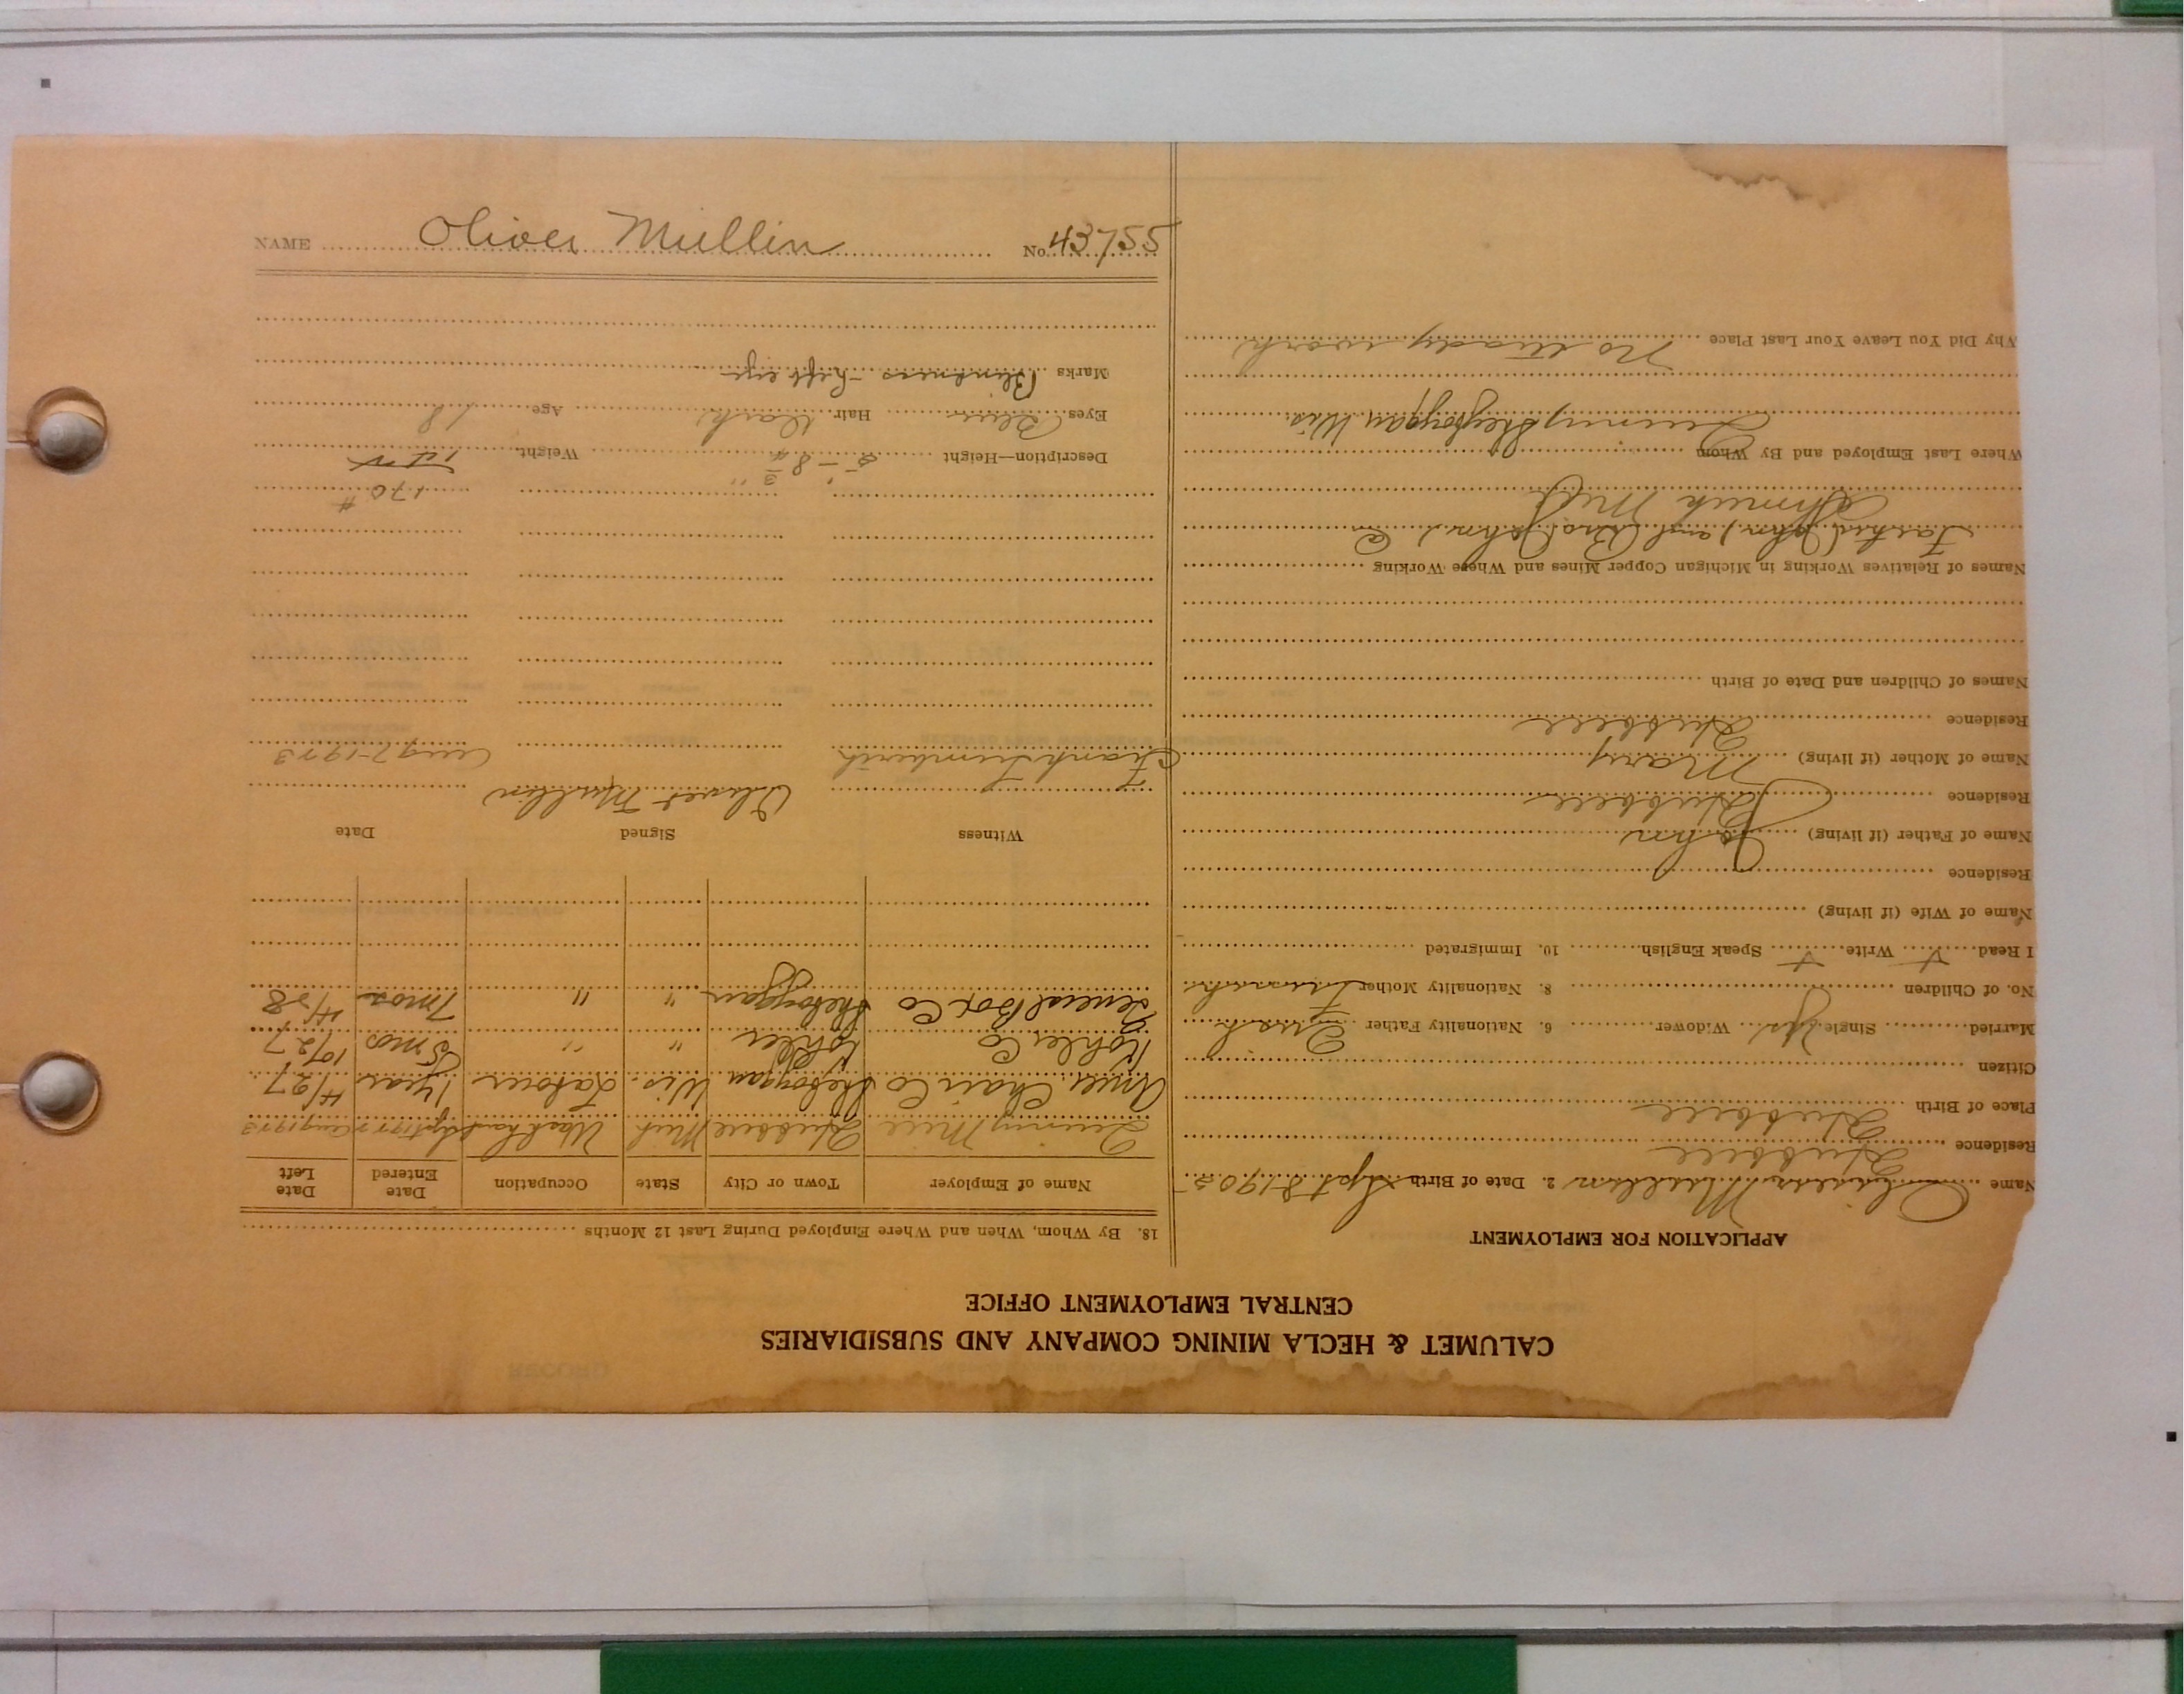 NAME Oliver Mullin No. 43755
CALUMET & HECLA MINING COMPANY AND SUBSIDIARIES
CENTRAL EMPLOYMENT OFFICE
APPLICATION FOR EMPLOYMENT
Name Oliver Mullin 2. Date of Birth Sept 8 1905
Residence Hubbell
Place of Birth Hubbell
Citizen
Married Single Yes Widower 6. Nationality Father
No. of Children 8. Nationality Mother French
I Read Write Speak English 10. Immigrated
Name of Wife (if living)
Residence
Name of Father (if living) John
Residence Hubbell
Name of Mother (if living) Mary
Residence Hubbell
Names of Children and Date of Birth
Names of Relatives Working in Michigan Copper Mines and Where Working
Father (John) and Bro (John) @
Ahmeek Mill
Where Last Employed and By Whom
Sheyboygan Wis.
Why Did You Leave Your Last Place No steady work
18. By Whom, When and Where Employed During Last 12 Months
Name of Employer Town or City State Occupation Date Entered Date Left
Mill Hubbell Mich Wash hand Aug 1923
Amer. Chair Co Sheboygan Wis. Laborer 1 year 4/27
Kohler Co Kohler " " 5 mos 10/27
General Box Co Sheboygan " " 7 mos 4/28
Witness Signed Date
Frank Oliver Mullin Aug 7-1923
170 #
Description—Height 5'-8 3/4" Weight
Eyes Blue Hair Dark Age 18
Marks Blindness - Left eye